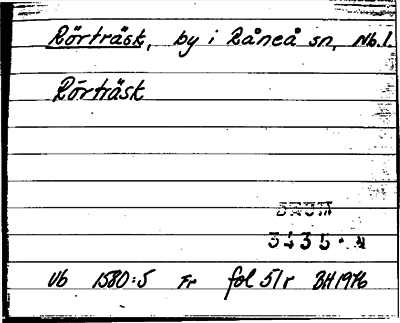 Rörträsk, by i Råneå sn, Nb.l.
Rörträsk
Vb 1580:5 Fr fol 51r BH1976